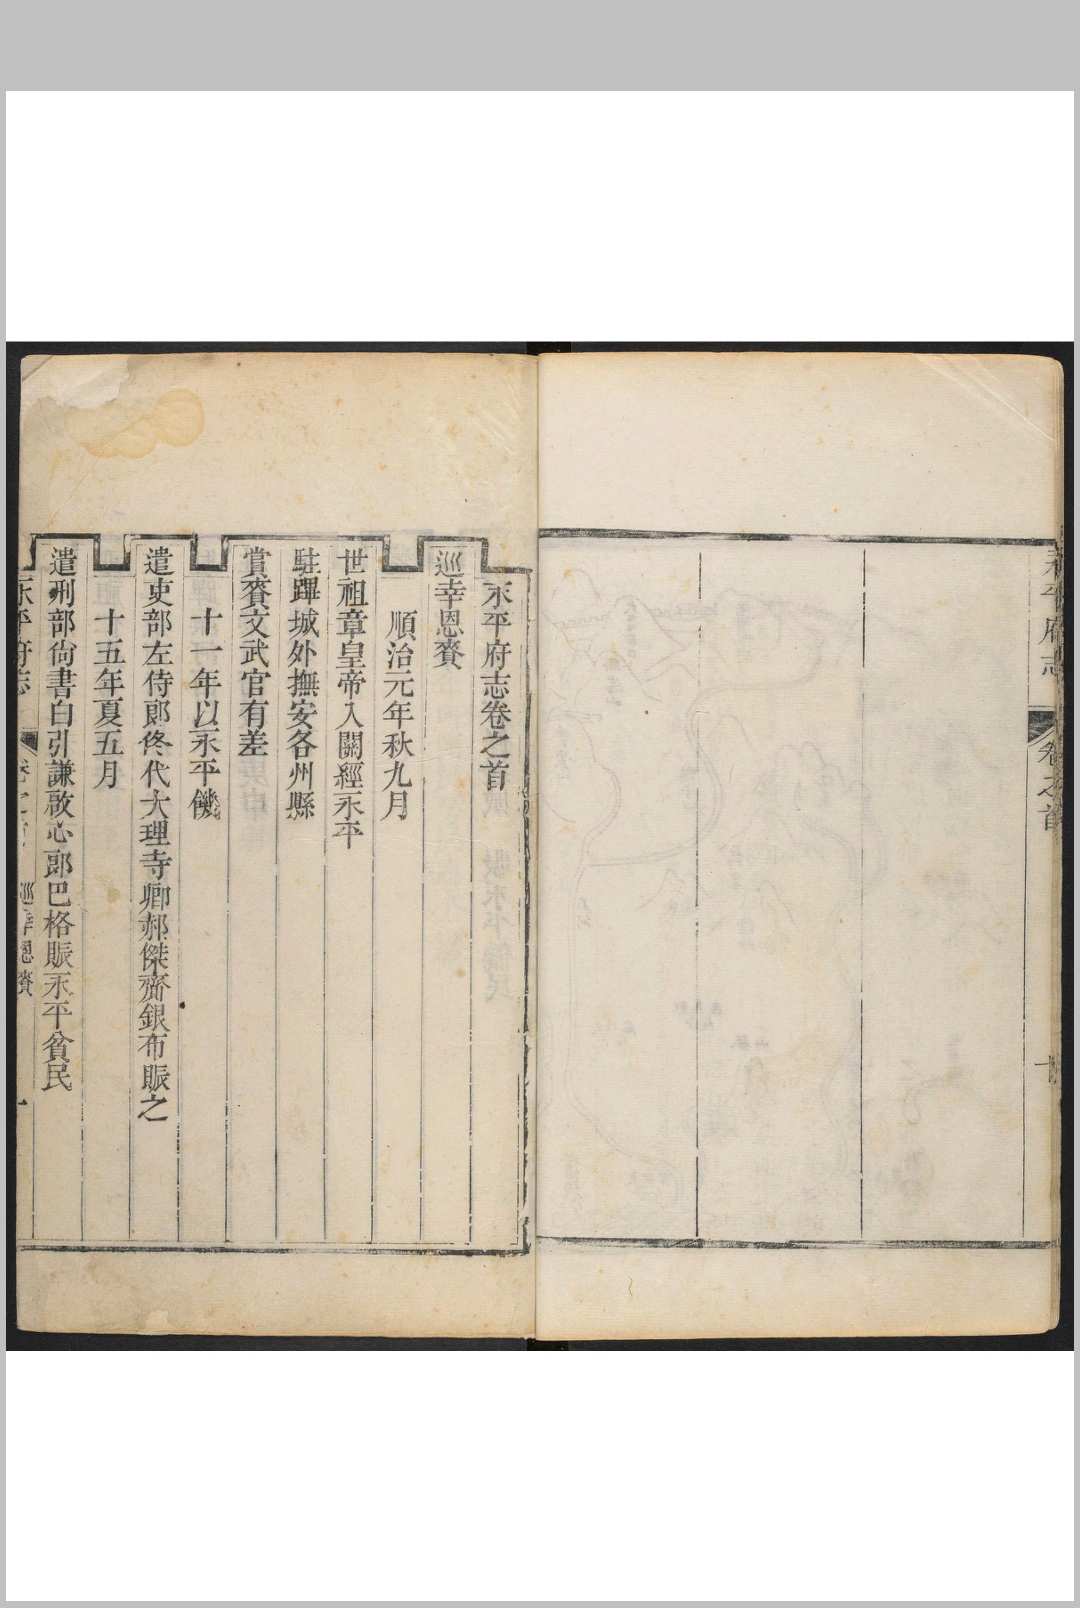 永平府志
卷之首
十
永平府志卷之首
巡幸恩賚
順治元年秋九月
世祖章皇帝入關經永平
駐蹕城外撫安各州縣
賞賚文武官有差
十一年以永平饑
遣吏部左侍郎佟代大理寺卿郝傑齎銀布賑之
十五年夏五月
遣刑部尙書白引謙啟心郎巴格賑永平貧民
永平府志
卷之首
巡幸恩賚
一